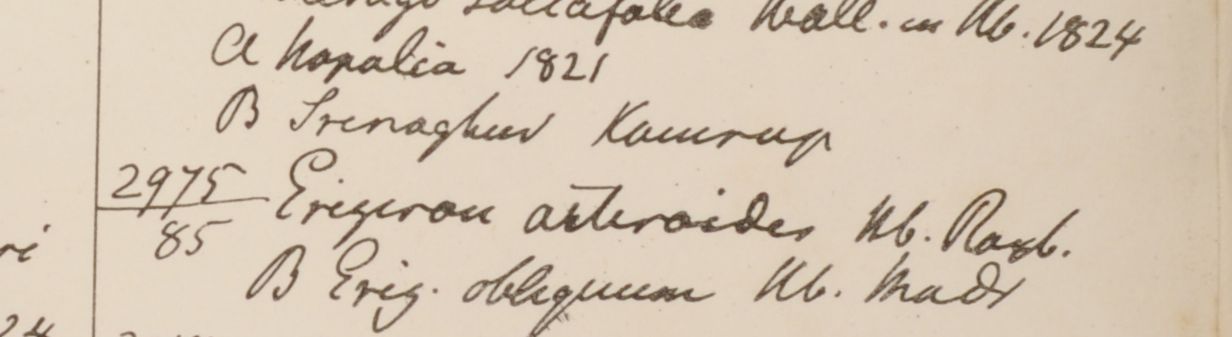 Wall. in Hb. 1824
A Napalia 1821
B Srenaghur Kamrup
2975 Erigeron asteroides Hb. Roxb.
85
B Erig. obliquum Hb. Madr